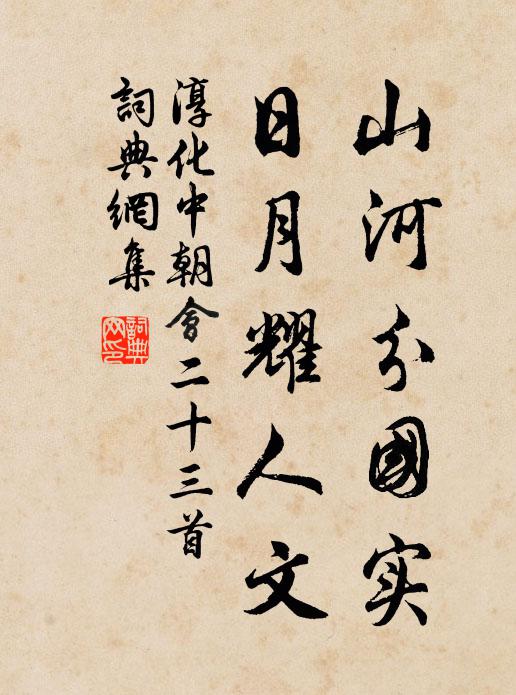 山河分國实
日月耀人文
淳化中朝會二十三首
詞典網集
詞典網印